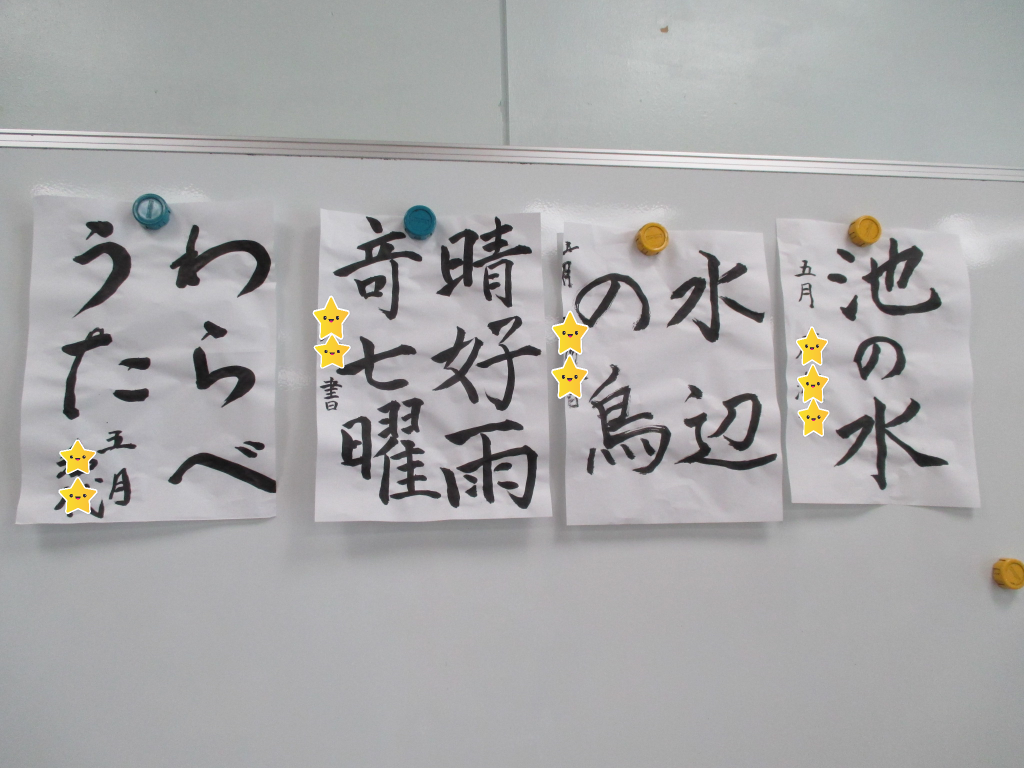 池の水
五月
水辺
の鳥
五月
晴好雨
奇七曜
書
わらべ
うた
五月